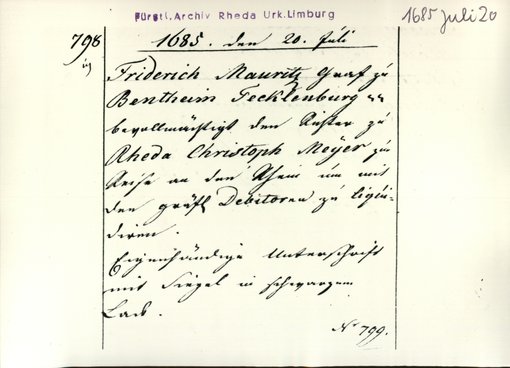 Fürstl. Archiv Rheda Urk. Limburg
1685 Juli 20
798
1685. den 20. Juli
Friderich Mauritz Graf zu
Bentheim Tecklenburg
bevollmächtigt den Richter zu
Rheda Christoph Meyer zur
Reise an den Rhein um mit
den gräfl Debitoren zu liqui-
diren.
Eigenhändige Unterschrift
mit Siegel in schwarzem
Lack.
No 799.